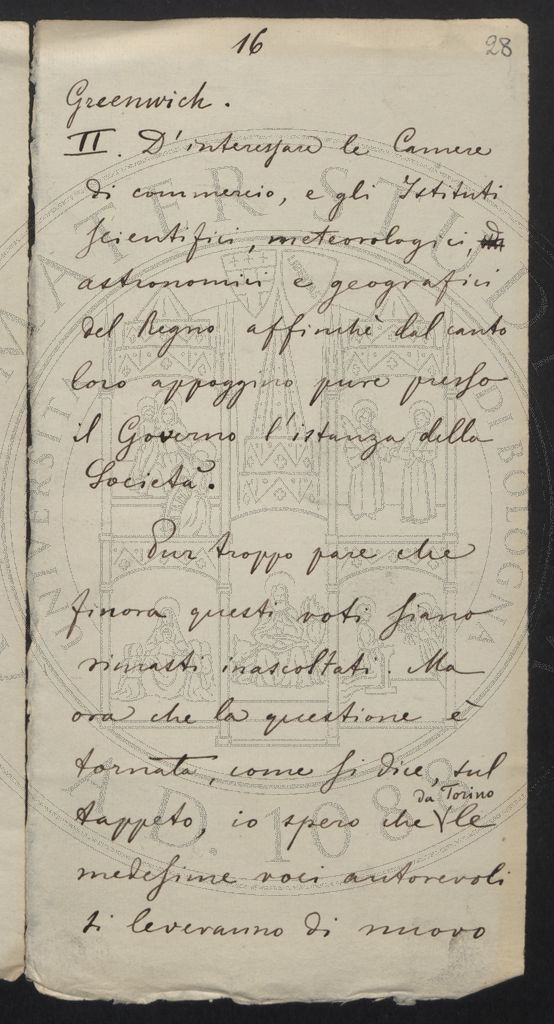 16
28
Greenwich.
II. D'interessare le Camere
di commercio, e gli Istituti
scientifici, meteorologici,
astronomici e geografici
del Regno affinchè dal canto
loro appoggino pure presso
il Governo l'istanza della
Società.
Pur troppo pare che
finora questi voti siano
rimasti inascoltati. Ma
ora che la questione è
tornata, come si dice, sul
da Torino
tappeto, io spero che le
medesime voci autorevoli
si leveranno di nuovo
ALMA MATER STUDIORUM
UNIVERSITÀ DI BOLOGNA
A.D. 1088